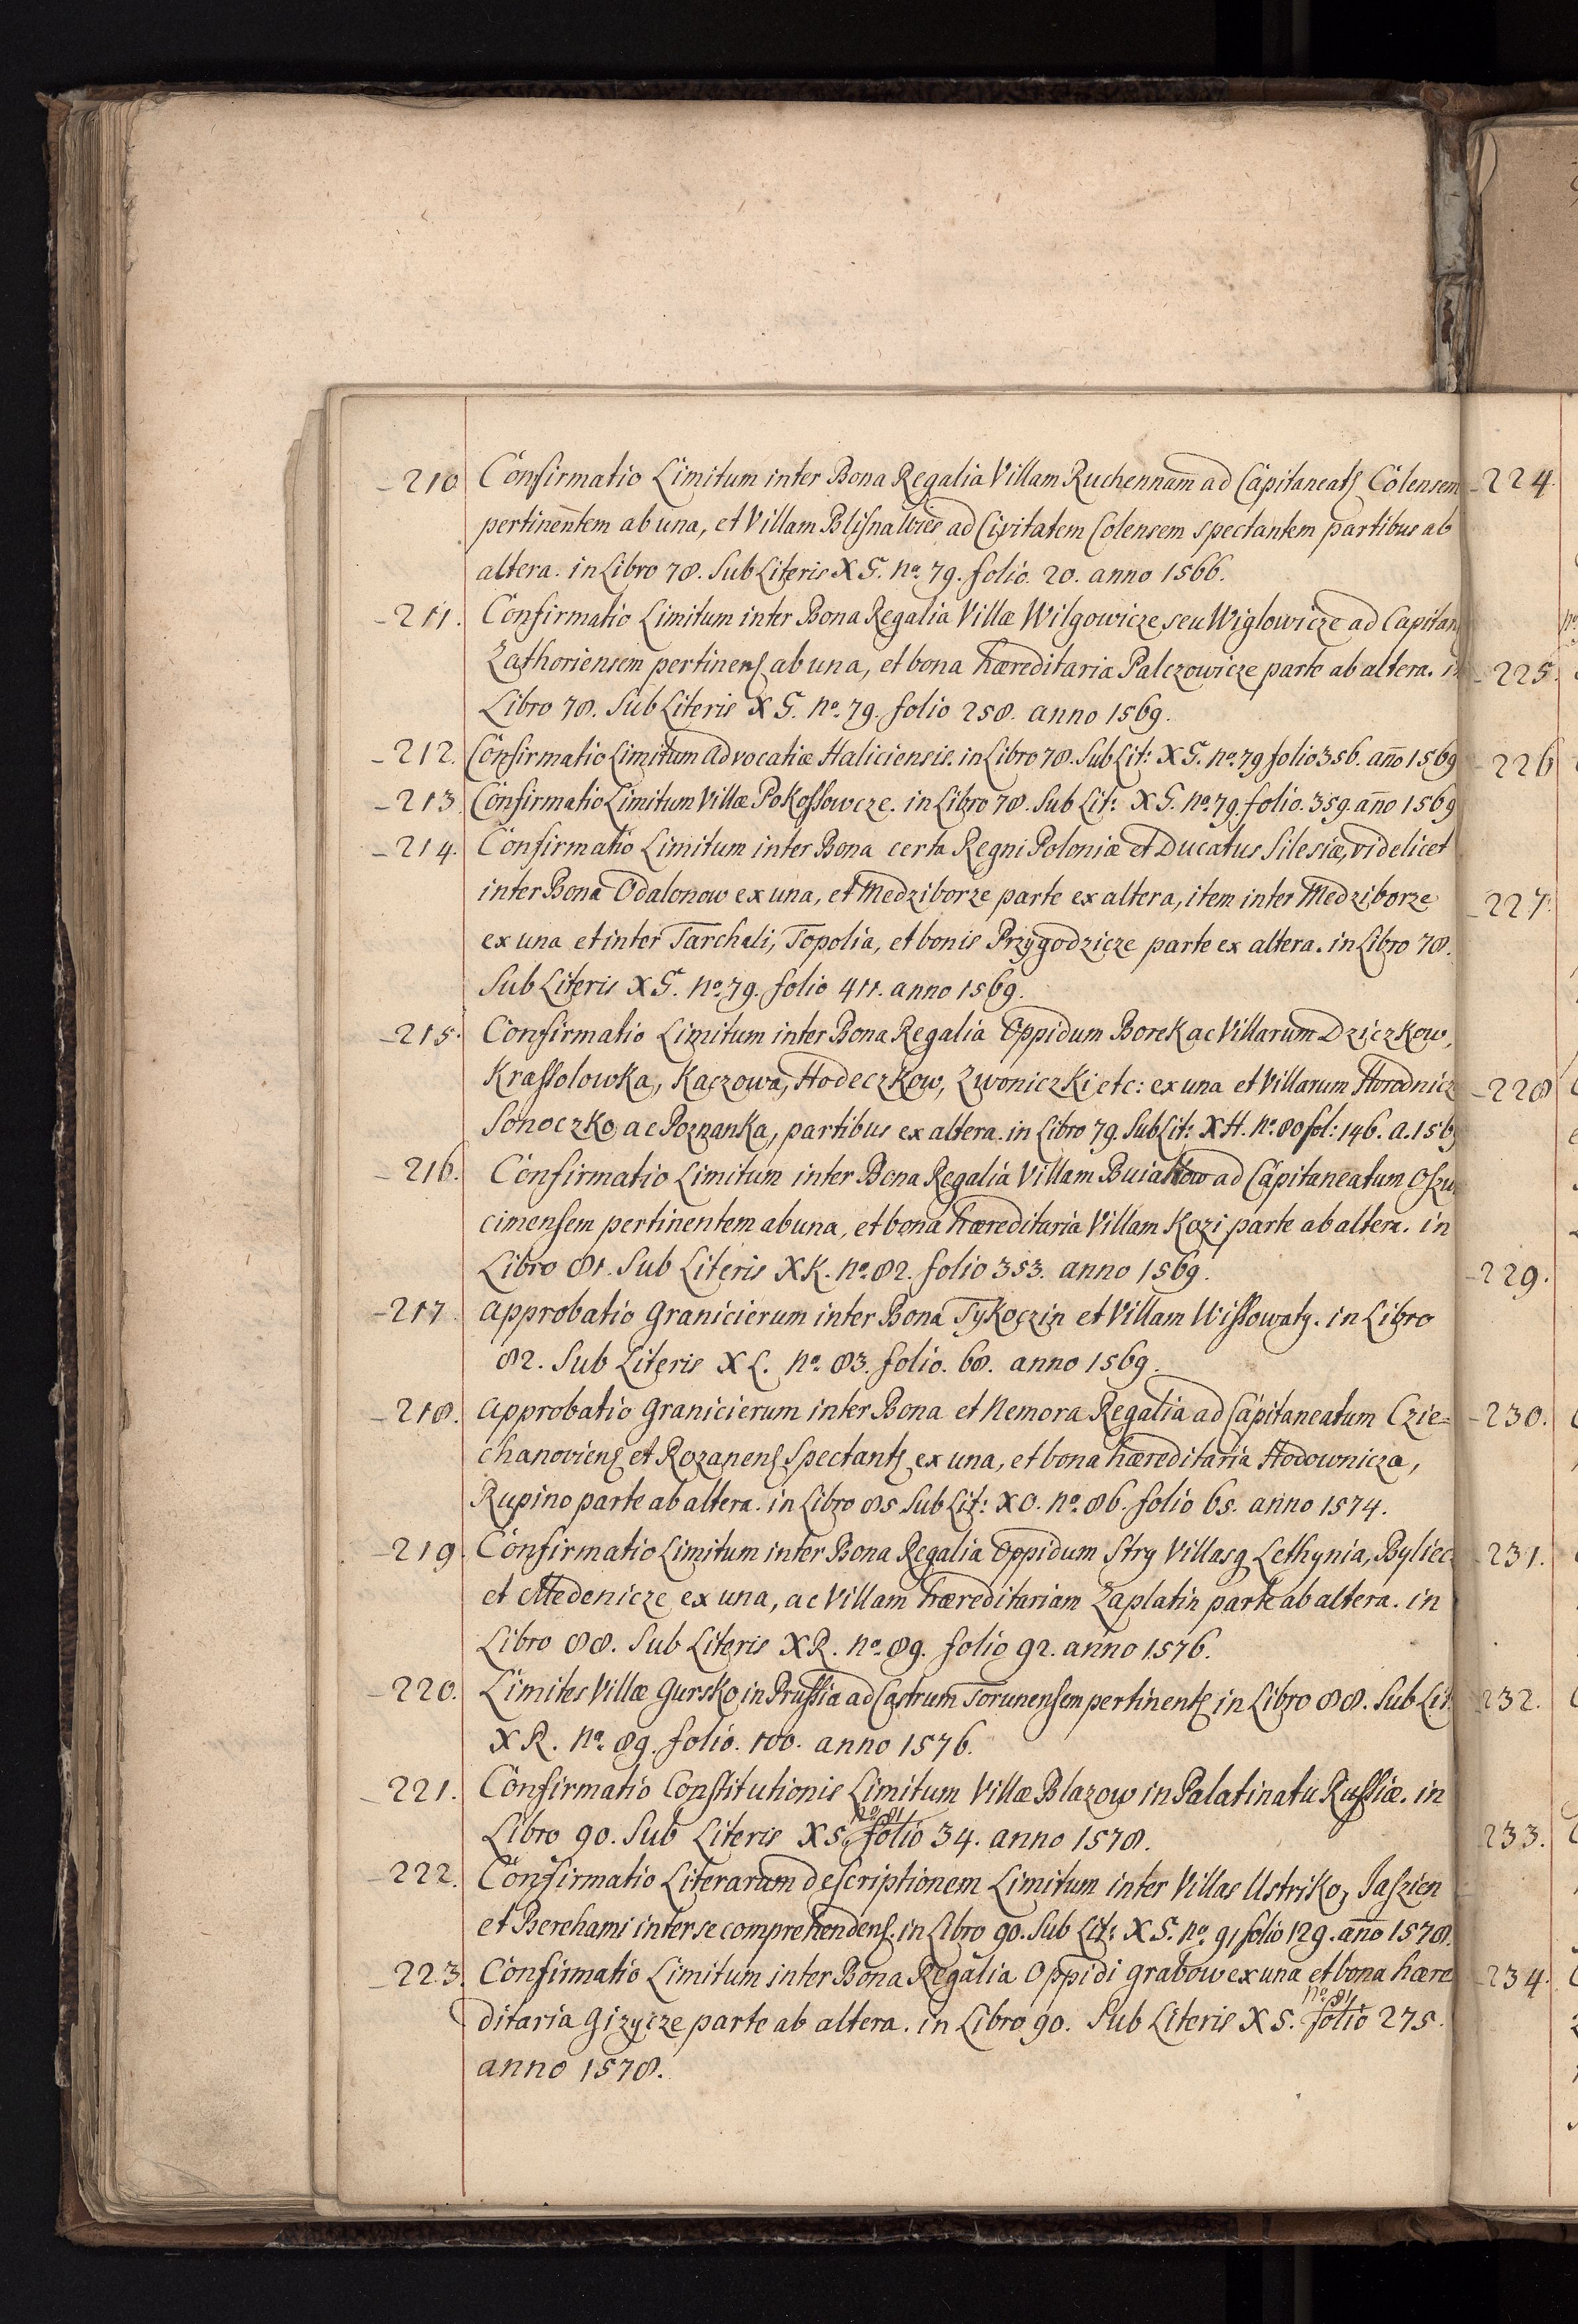 210 Confirmatio Limitum inter Bona Regalia Villam Ruchennam ad Capitaneatꝫ Colensem
pertinentem ab una, et Villam Blisna Wies ad Civitatem Colensem spectantem partibus ab
altera. in Libro 78. Sub Literis XG. No. 79. folio. 20. anno 1566.
211. Confirmatio Limitum inter Bona Regalia Villæ Wilgowicze seu Wiglowicze ad Capitan
Zathoriensem pertinenꝭ ab una, et bona hæreditaria Palczowicze parte ab altera. in
Libro 78. Sub Literis XG. No. 79. folio 258. anno 1569.
212. Confirmatio Limitum Advocatiæ Haliciensis. in Libro 78. Sub Lit: XG. No. 79 folio 356. año 1569
213. Confirmatio Limitum Villæ Pokossowcze. in Libro 78. Sub Lit: XG. No. 79. folio. 359. año 1569
214. Confirmatio Limitum inter Bona certa Regni Poloniæ et Ducatus Silesiæ, videlicet
inter Bona Odalonow ex una, et Medziborze parte ex altera, item inter Medziborze
ex una et inter Tarchali, Topolia, et bonis Przygodzicze parte ex altera. in Libro 78.
Sub Literis XG. No. 79. folio 411. anno 1569.
215. Confirmatio Limitum inter Bona Regalia Oppidum Borek ac Villarum Dziczkow,
Krassolowka, Kaczowa, Hodeczkow, Zwoniczki etc: ex una et Villarum Horodnicz
Sonoczko ac Poznanka, partibus ex altera. in Libro 79. Sub Lit: XH. No. 80 fol: 146. a. 156
216. Confirmatio Limitum inter Bona Regalia Villam Buiakow ad Capitaneatum Oszu
cimensem pertinentem ab una, et bona hæreditaria Villam Kozi parte ab altera. in
Libro 81. Sub Literis XK. No. 82. folio 353. anno 1569.
217. Approbatio Granicierum inter Bona Tykoczin et Villam Wissowaty. in Libro
82. Sub Literis XL. No. 83. folio. 68. anno 1569.
218. Approbatio Granicierum inter Bona et Nemora Regalia ad Capitaneatum Czie=
chanovienꝭ et Rozanenꝭ Spectantꝫ ex una, et bona hæreditaria Hodownicza,
Rupino parte ab altera. in Libro 85 Sub Lit: XO. No. 86. folio 65. anno 1574.
219. Confirmatio Limitum inter Bona Regalia Oppidum Stry Villasq Lethynia, Byliec
et Medenicze ex una, ac Villam hæreditariam Zaplatin parte ab altera. in
Libro 88. Sub Literis XR. No. 89. folio 92. anno 1576.
220. Limites Villæ Gursko in Prussia ad Castrum Torunensem pertinentꝫ in Libro 88. Sub Lit
XR. No. 89. folio. 100. anno 1576.
221. Confirmatio Constitutionis Limitum Villæ Blazow in Palatinatu Russiæ. in
Libro 90. Sub Literis XS. No. 91 folio 34. anno 1578.
222. Confirmatio Literarum descriptionem Limitum inter Villas Ustriko, Jaszien
et Berehami inter se comprehendenꝭ. in Libro 90. Sub Lit: XS. No. 91 folio 129. año 1578.
223. Confirmatio Limitum inter Bona Regalia Oppidi Grabow ex una et bona hære
ditaria Gizycze parte ab altera. in Libro 90. Sub Literis XS. No. 91 folio 275.
anno 1578.
224.
225.
226
227.
228
229.
230.
231.
232.
233.
234.